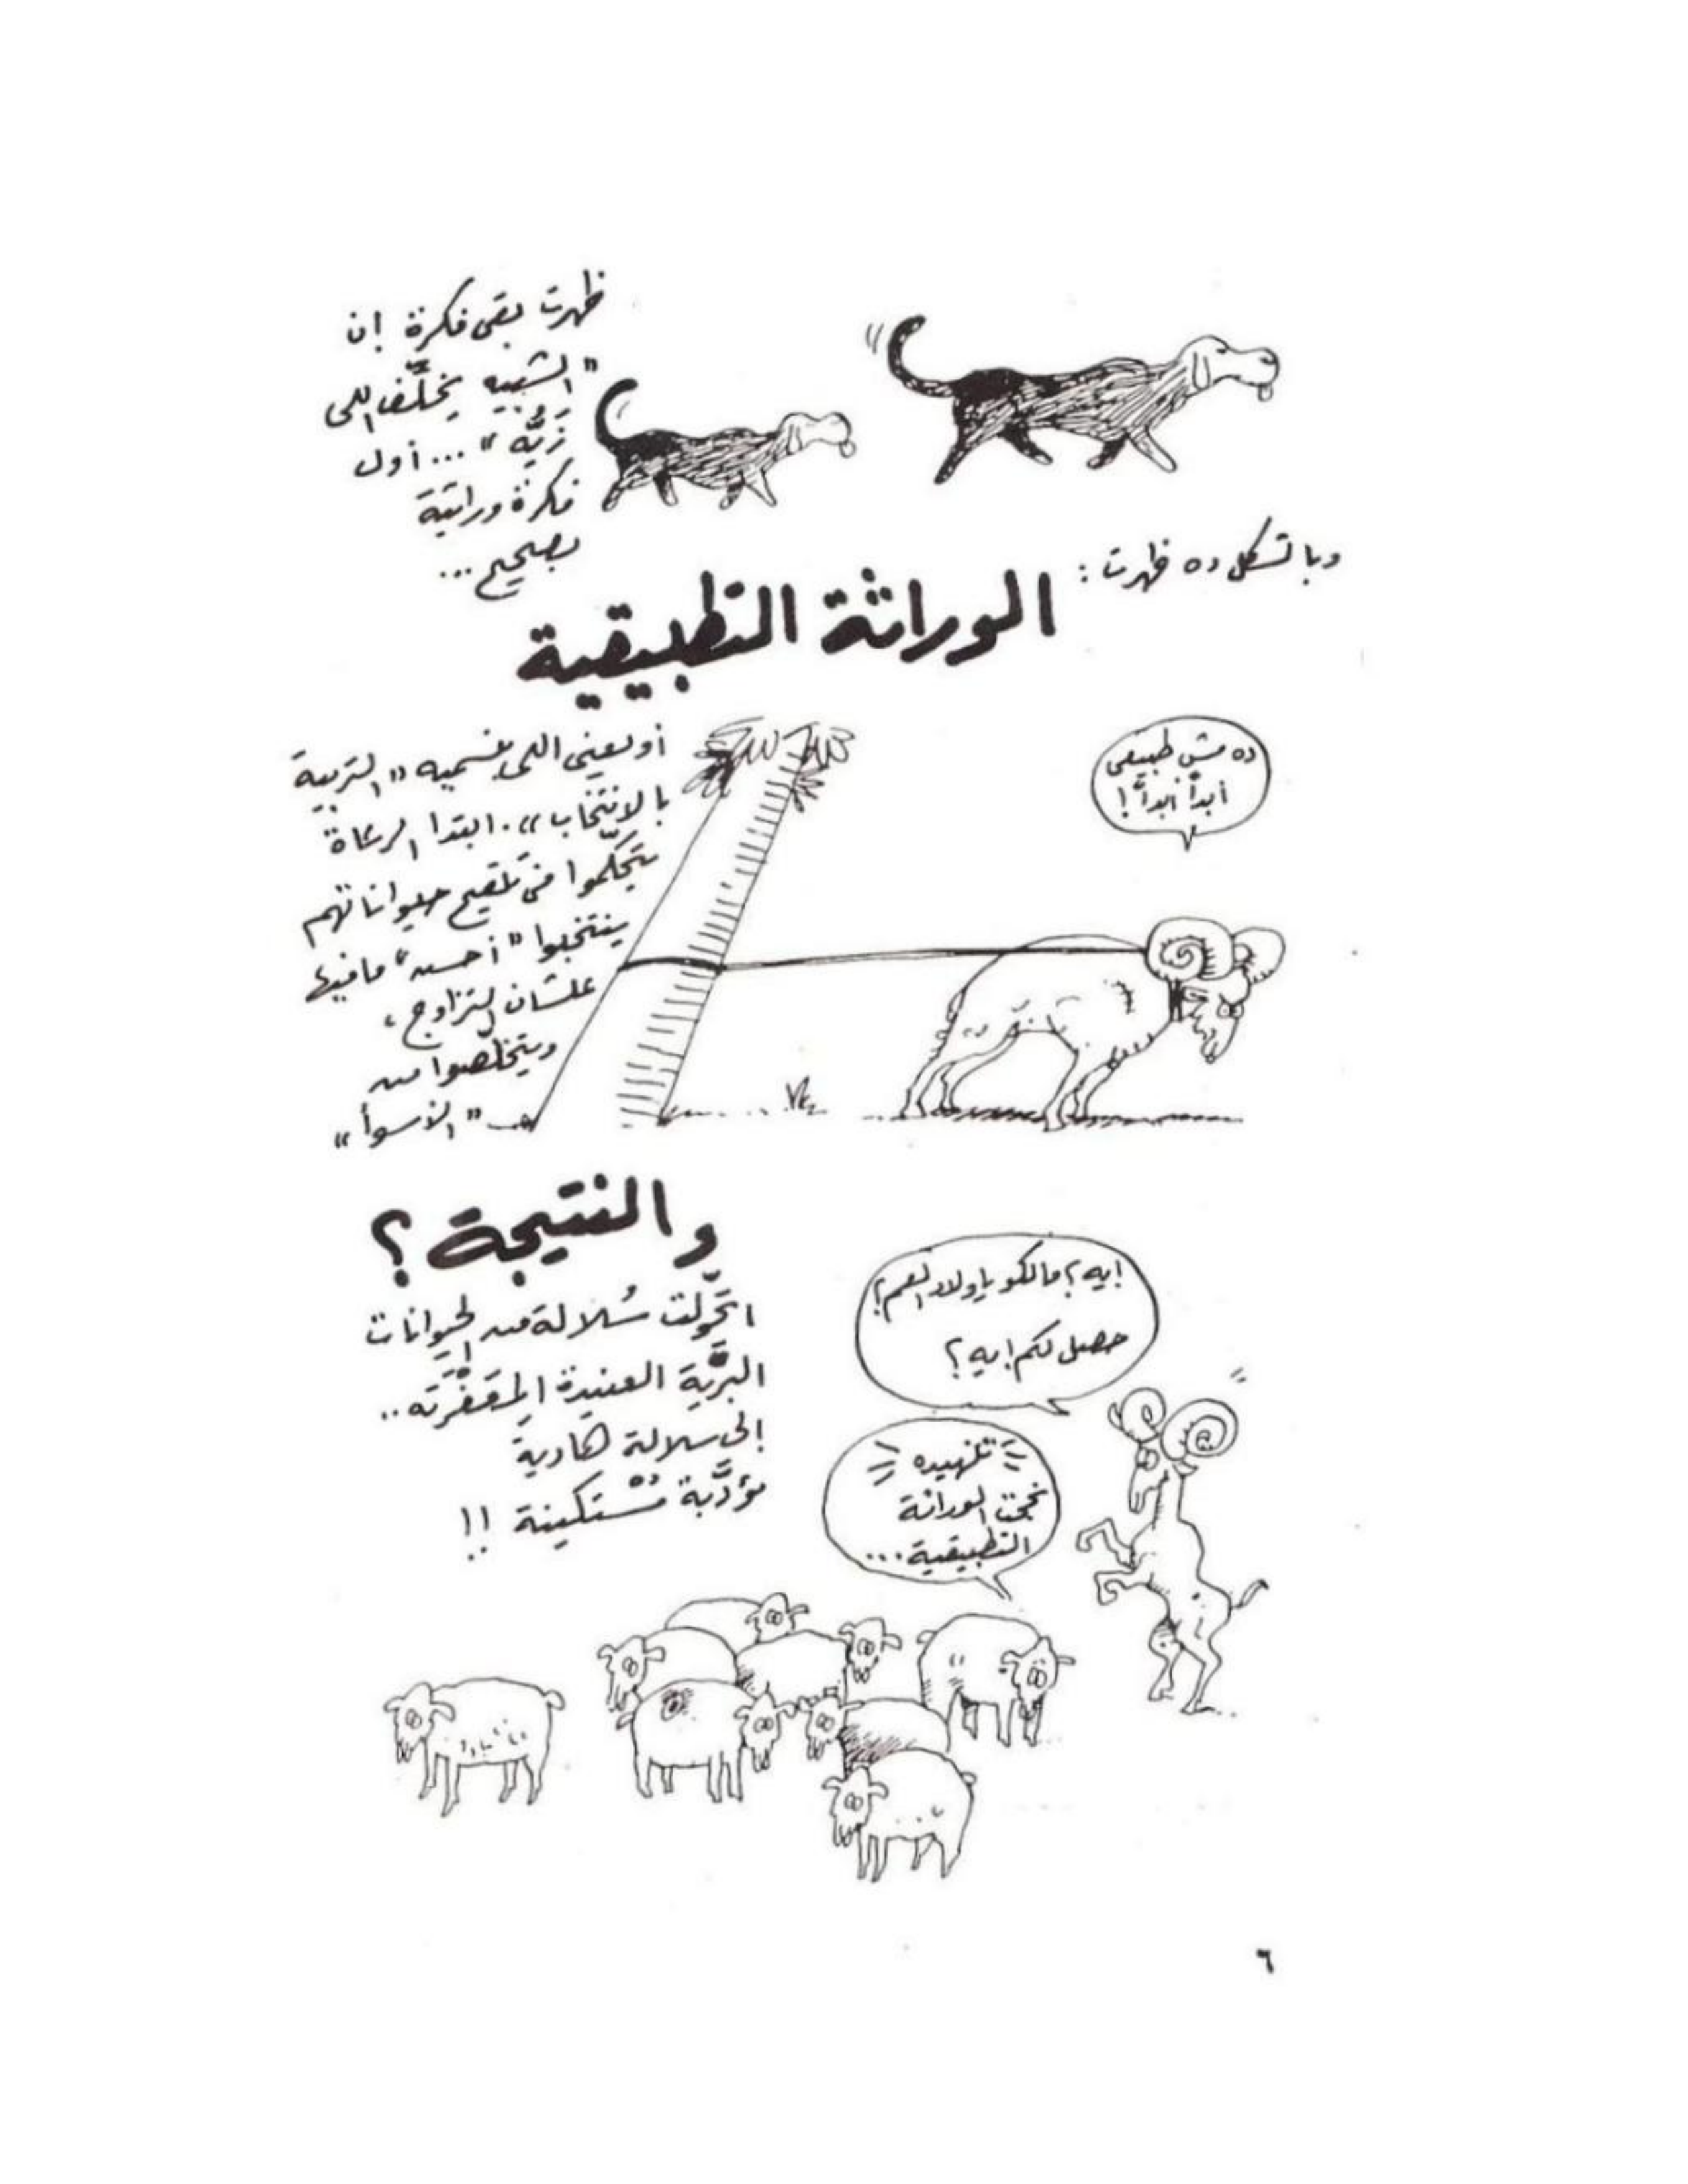 ظهرت بقى فكرة إن
"الشبيه يخلَّف اللى
زَيُّه"... أول
فكرة وراثية
بصحيح...
وبالشكل ده ظهرت:
الوراثة التطبيقية
أو يعنى اللى بنسميه "التربية
بالانتخاب". ابتدا الرعاة
يتحكّموا فى تلقيح حيواناتهم
ينتخبوا "أحسن" ما فيها
علشان التزاوج،
ويتخلّصوا من
"الأسوأ"
ده مش طبيعى
أبداً أبداً!
والنتيجة؟
اتحوّلت سُلالة من الحيوانات
البرَّية العنيدة المقَفَّرته..
إلى سلالة هادية
مؤدَّبة مُستكينة!!
ايه؟ مالكو ياولاد العم؟
حصل لكم ايه؟
تنهيده
نجحت الوراثة
التطبيقية...
٦